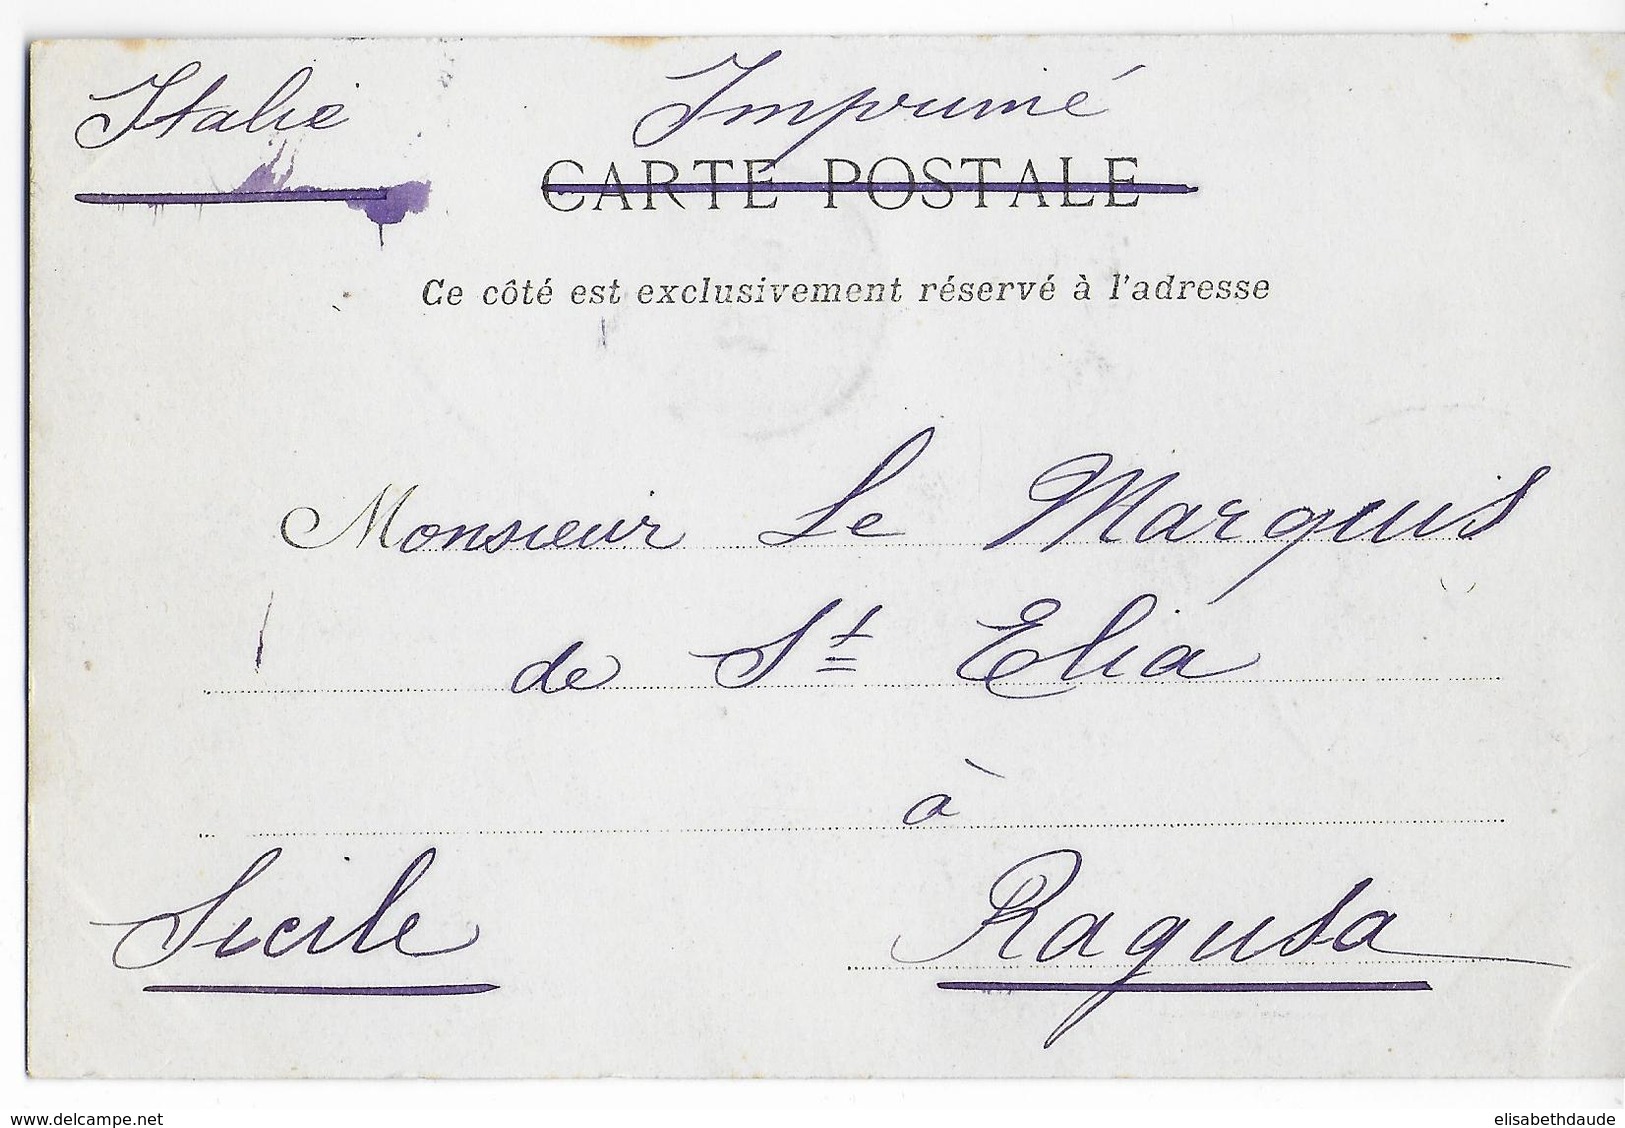 Italie Imprimé
CARTE POSTALE
Ce côté est exclusivement réservé à l'adresse
Monsieur Le Marquis
de St Elia
à
Sicile Ragusa
www.delcampe.net elisabethdaude